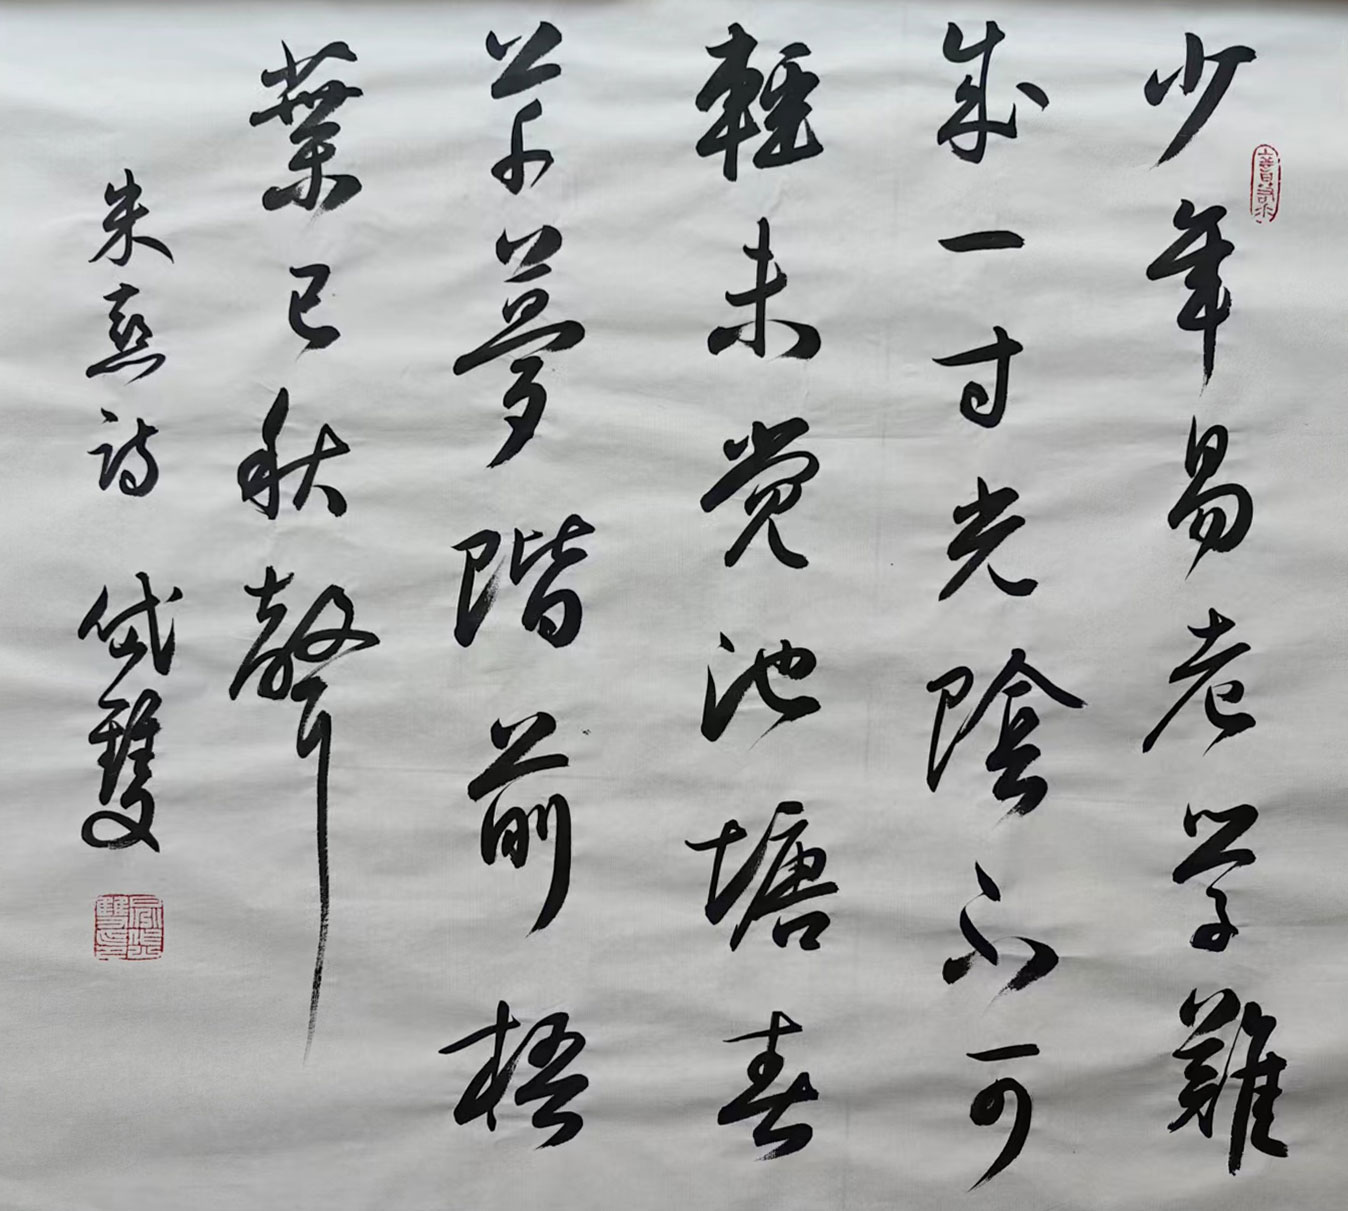 少年易老学難
成一寸光陰不可
輕未觉池塘春
草夢階前梧
葉已秋聲
朱熹诗 岱雙
上善若水